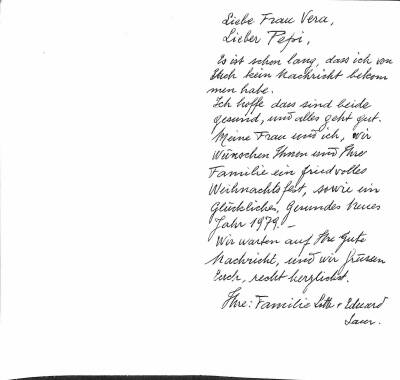 Liebe Frau Vera,
Lieber Pepi,
Es ist schon lang, dass ich von
Euch kein Nachricht bekom
men habe.
Ich hoffe dass sind beide
gesund, und alles geht gut.
Meine Frau und ich, wir
Wünschen Ihnen und Ihre
Familie ein friedvolles
Weihnachtsfest, sowie ein
Glückliches, Gesundes Neues
Jahr 1979.-
Wir warten auf Ihre Gute
Nachricht, und wir Grüssen
Euch, recht herzlichst.
Ihre: Familie + Eduard